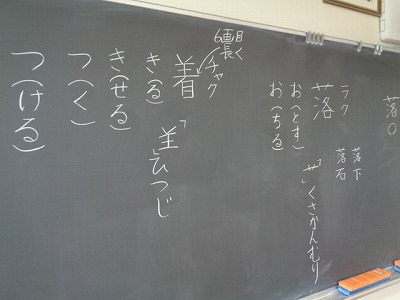 落○
落下
落石
ラク
落
お(とす)
お(ちる)
「艹」くさかんむり
6画目
長く
チャク
着
き(る)
き(せる)
つ(く)
つ(ける)
「𦍌」ひつじ